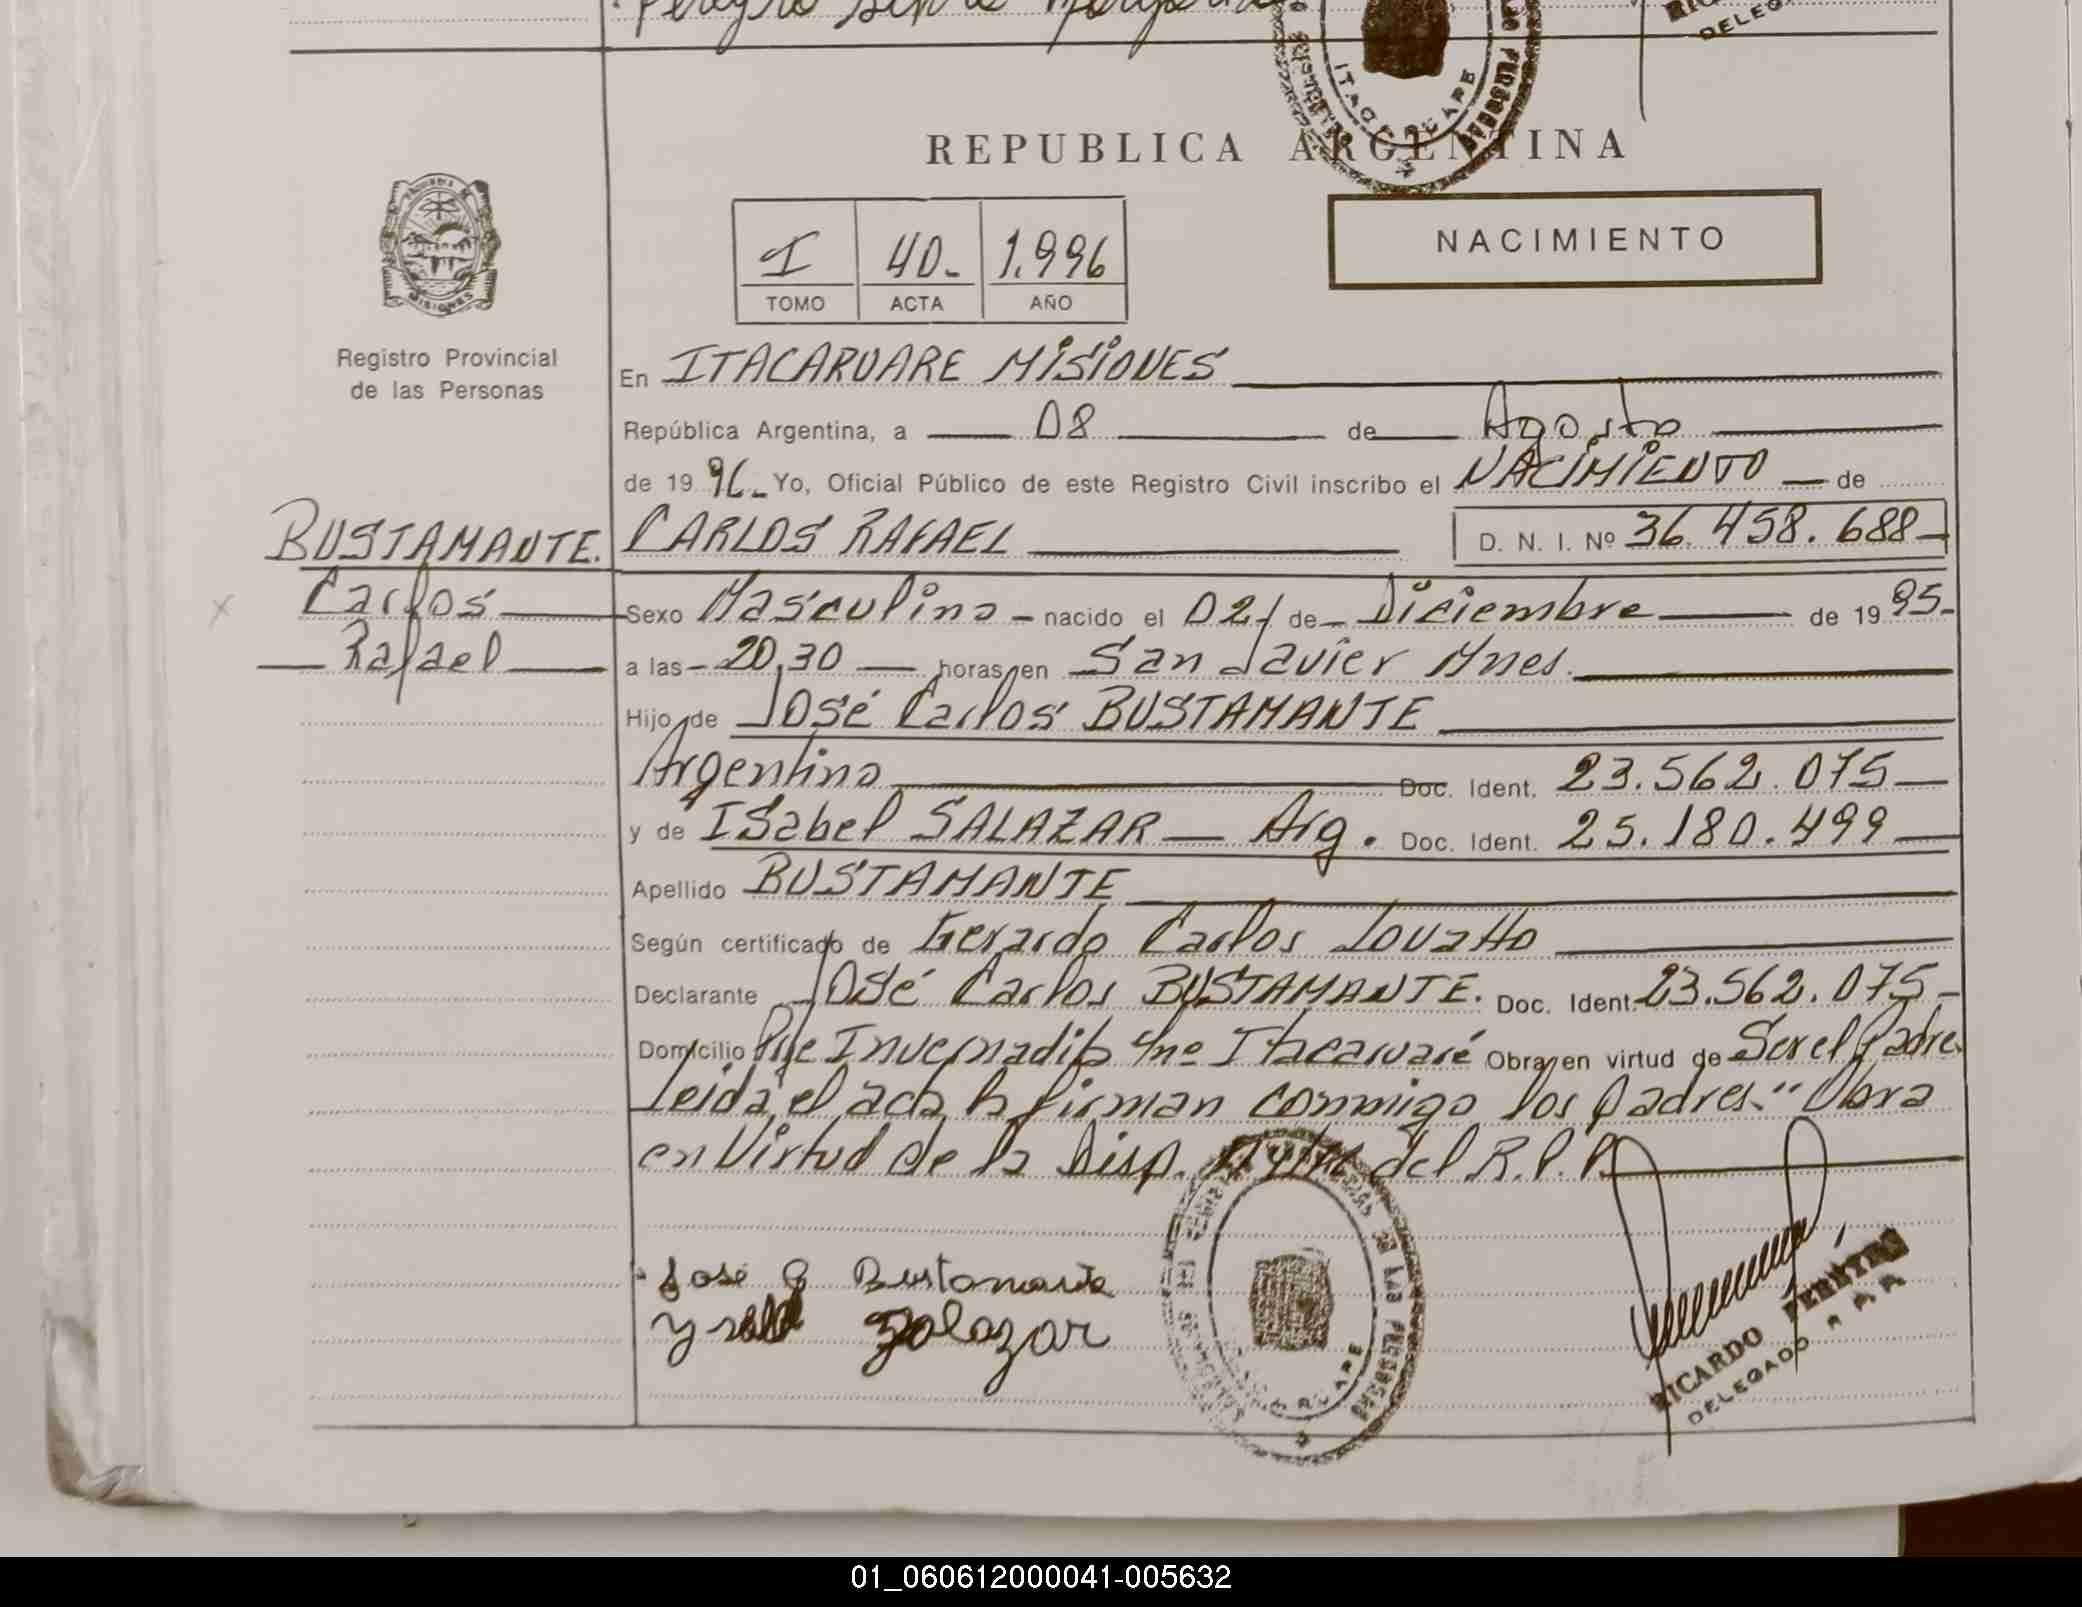 REPUBLICA ARGENTINA
I 40- 1.996
TOMO ACTA AÑO
NACIMIENTO
MISIONES
Registro Provincial
de las Personas
En ITACARUARE MISIONES
República Argentina, a 08 de Agosto
de 1996- Yo, Oficial Público de este Registro Civil inscribo el NACIMIENTO de
BUSTAMANTE. CARLOS RAFAEL D. N. I. Nº 36.458.688-
Carlos
Rafael
Sexo Masculino - nacido el 02 de Diciembre de 1995-
a las - 20,30 horas en San Javier Mnes.
Hijo de José Carlos BUSTAMANTE
Argentino Doc. Ident. 23.562.075
y de ISabel SALAZAR Arg. Doc. Ident. 25.180.499
Apellido BUSTAMANTE
Según certificado de Gerardo Carlos Lovatto
Declarante José Carlos BUSTAMANTE. Doc. Ident. 23.562.075-
Domicilio Itacaruaré Obra en virtud de Ser el Padre
Leida el acta la firman conmigo los Padres." Obra
en Virtud de la Disp. del R.P.P.
José C Bustamante
Zalazar
RICARDO
DELEGADO
ITACARUARE
01_060612000041-005632